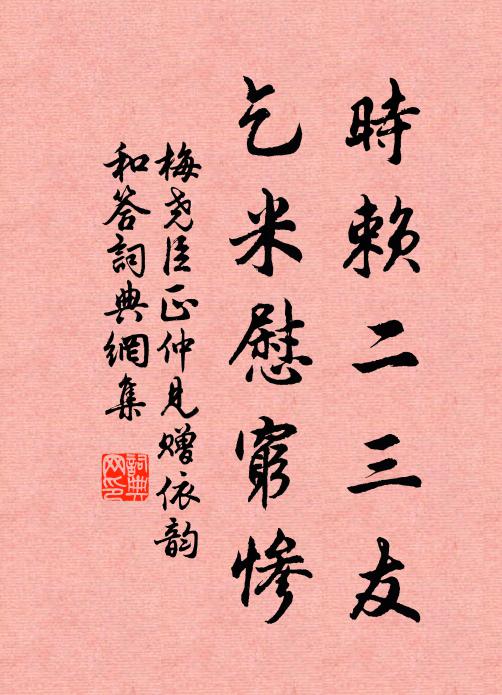 時賴二三友
乞米慰窮慘
梅尧臣正仲见赠依韵
和答詞典網集
詞典
网印